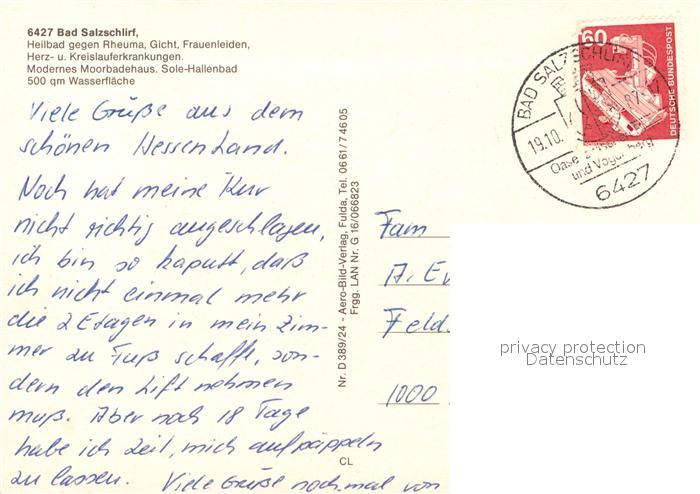 6427 Bad Salzschlirf,
Heilbad gegen Rheuma, Gicht, Frauenleiden,
Herz- u. Kreislauferkrankungen.
Modernes Moorbadehaus. Sole-Hallenbad
500 qm Wasserfläche
Viele Grüße aus dem
schönen Hessenland.
Noch hat meine Kur
nicht richtig angeschlagen,
ich bin so kaputt, daß
ich nicht einmal mehr
die 2 Etagen in mein Zim-
mer zu Fuß schaffe, son-
dern den Lift nehmen
muß. Aber noch 18 Tage
habe ich Zeit, mich aufpäppeln
zu lassen. Viele Grüße nochmal von
Nr. D 389/24 - Aero-Bild-Verlag, Fulda, Tel. 0661/74605
Frgg. LAN Nr. G 16/066823
CL
60
DEUTSCHE BUNDESPOST
BAD SALZSCHLIRF
19.10.
Oase
und Vogelsberg
6427
Fam
A. Ev
Feld
1000
privacy protection
Datenschutz